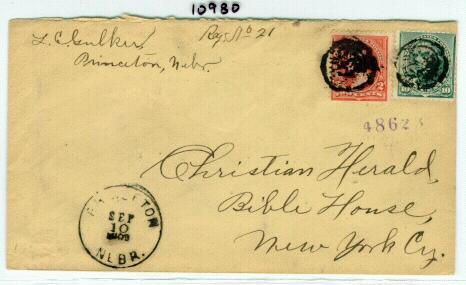 10980
L. C. Gulker
Reg. No 21
Princeton, Nebr.
4862
Christian Herald,
Bible House,
New York Cy.
SEP
10
NEBR.